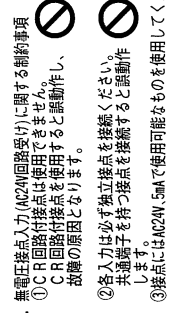 無電圧接点入力(AC24V回路受け)に関する制約事項
①CR回路付接点は使用できません。
CR回路付接点を使用すると誤動作し、
故障の原因となります。
②各入力は必ず独立接点を接続ください。
共通端子を持つ接点を接続すると誤動作
します。
③接点にはAC24V,5mAで使用可能なものを使用してく